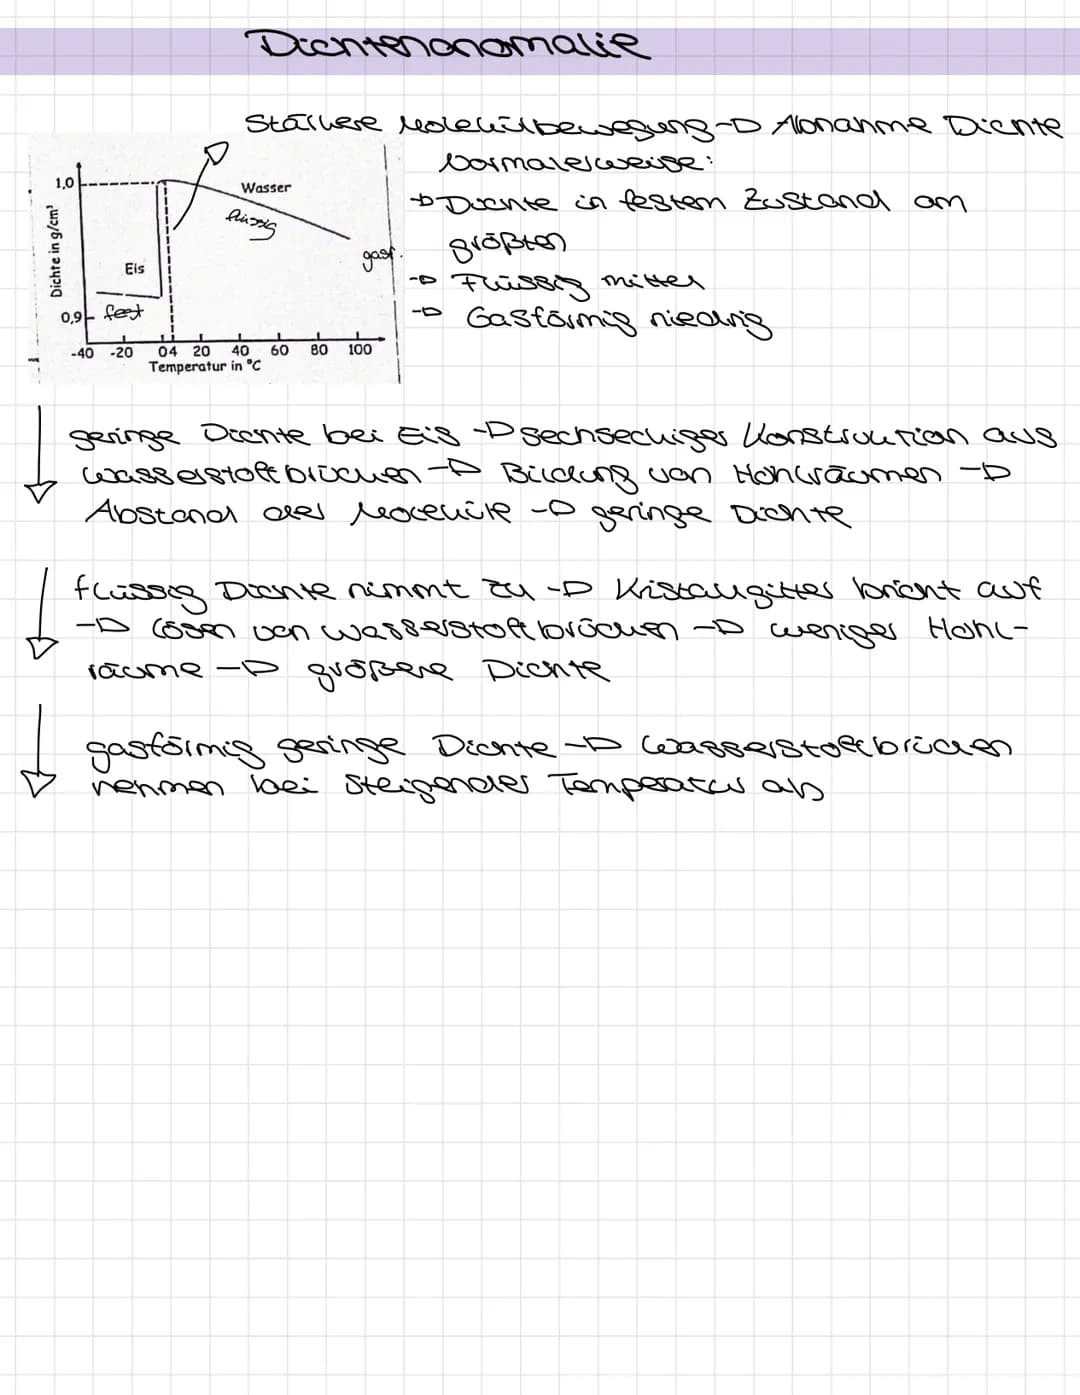 Dichtenanomalie
Stärkere Molekülbewegung → Abnahme Dichte
Normalerweise:
→ Dichte in festem Zustand am
größten
→ Flüssig mittel
→ Gasförmig niedrig
1,0
Wasser
flüssig
gasf.
Dichte in g/cm³
Eis
0,9
fest
-40 -20 0 4 20 40 60 80 100
Temperatur in °C
geringe Dichte bei Eis → sechseckiger Konstruktion aus
Wasserstoffbrücken → Bildung von Hohlräumen →
Abstand der Moleküle → geringe Dichte
flüssig Dichte nimmt zu → Kristallgitter bricht auf
→ lösen von Wasserstoffbrücken → weniger Hohl-
räume → größere Dichte
gasförmig geringe Dichte → Wasserstoffbrücken
nehmen bei steigender Temperatur ab